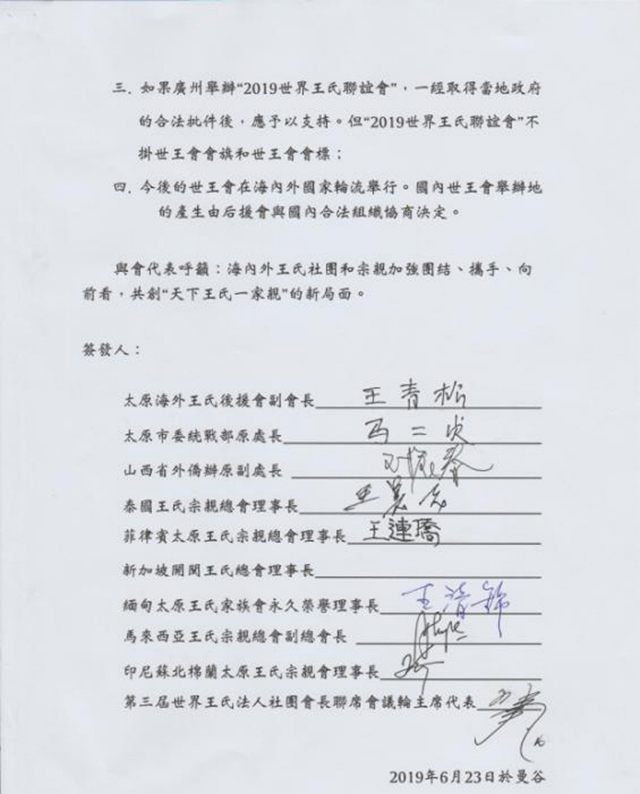 三. 如果廣州舉辦“2019世界王氏聯誼會”，一經取得當地政府
的合法批件後，應予以支持。但“2019世界王氏聯誼會”不
掛世王會會旗和世王會會標；
四. 今後的世王會在海內外國家輪流舉行。國內世王會舉辦地
的產生由后援會與國內合法組織協商決定。
與會代表呼籲：海內外王氏社團和宗親加強團結、攜手、向
前看，共創“天下王氏一家親”的新局面。
簽發人：
太原海外王氏後援會副會長 王青松
太原市委統戰部原處長
山西省外僑辦原副處長
泰國王氏宗親總會理事長
菲律賓太原王氏宗親總會理事長 王連瑤
新加坡開閩王氏總會理事長
緬甸太原王氏家族會永久榮譽理事長
馬來西亞王氏宗親總會副總會長
印尼蘇北棉蘭太原王氏宗親會理事長
第三屆世界王氏法人社團會長聯席會議輪主席代表
2019年6月23日於曼谷